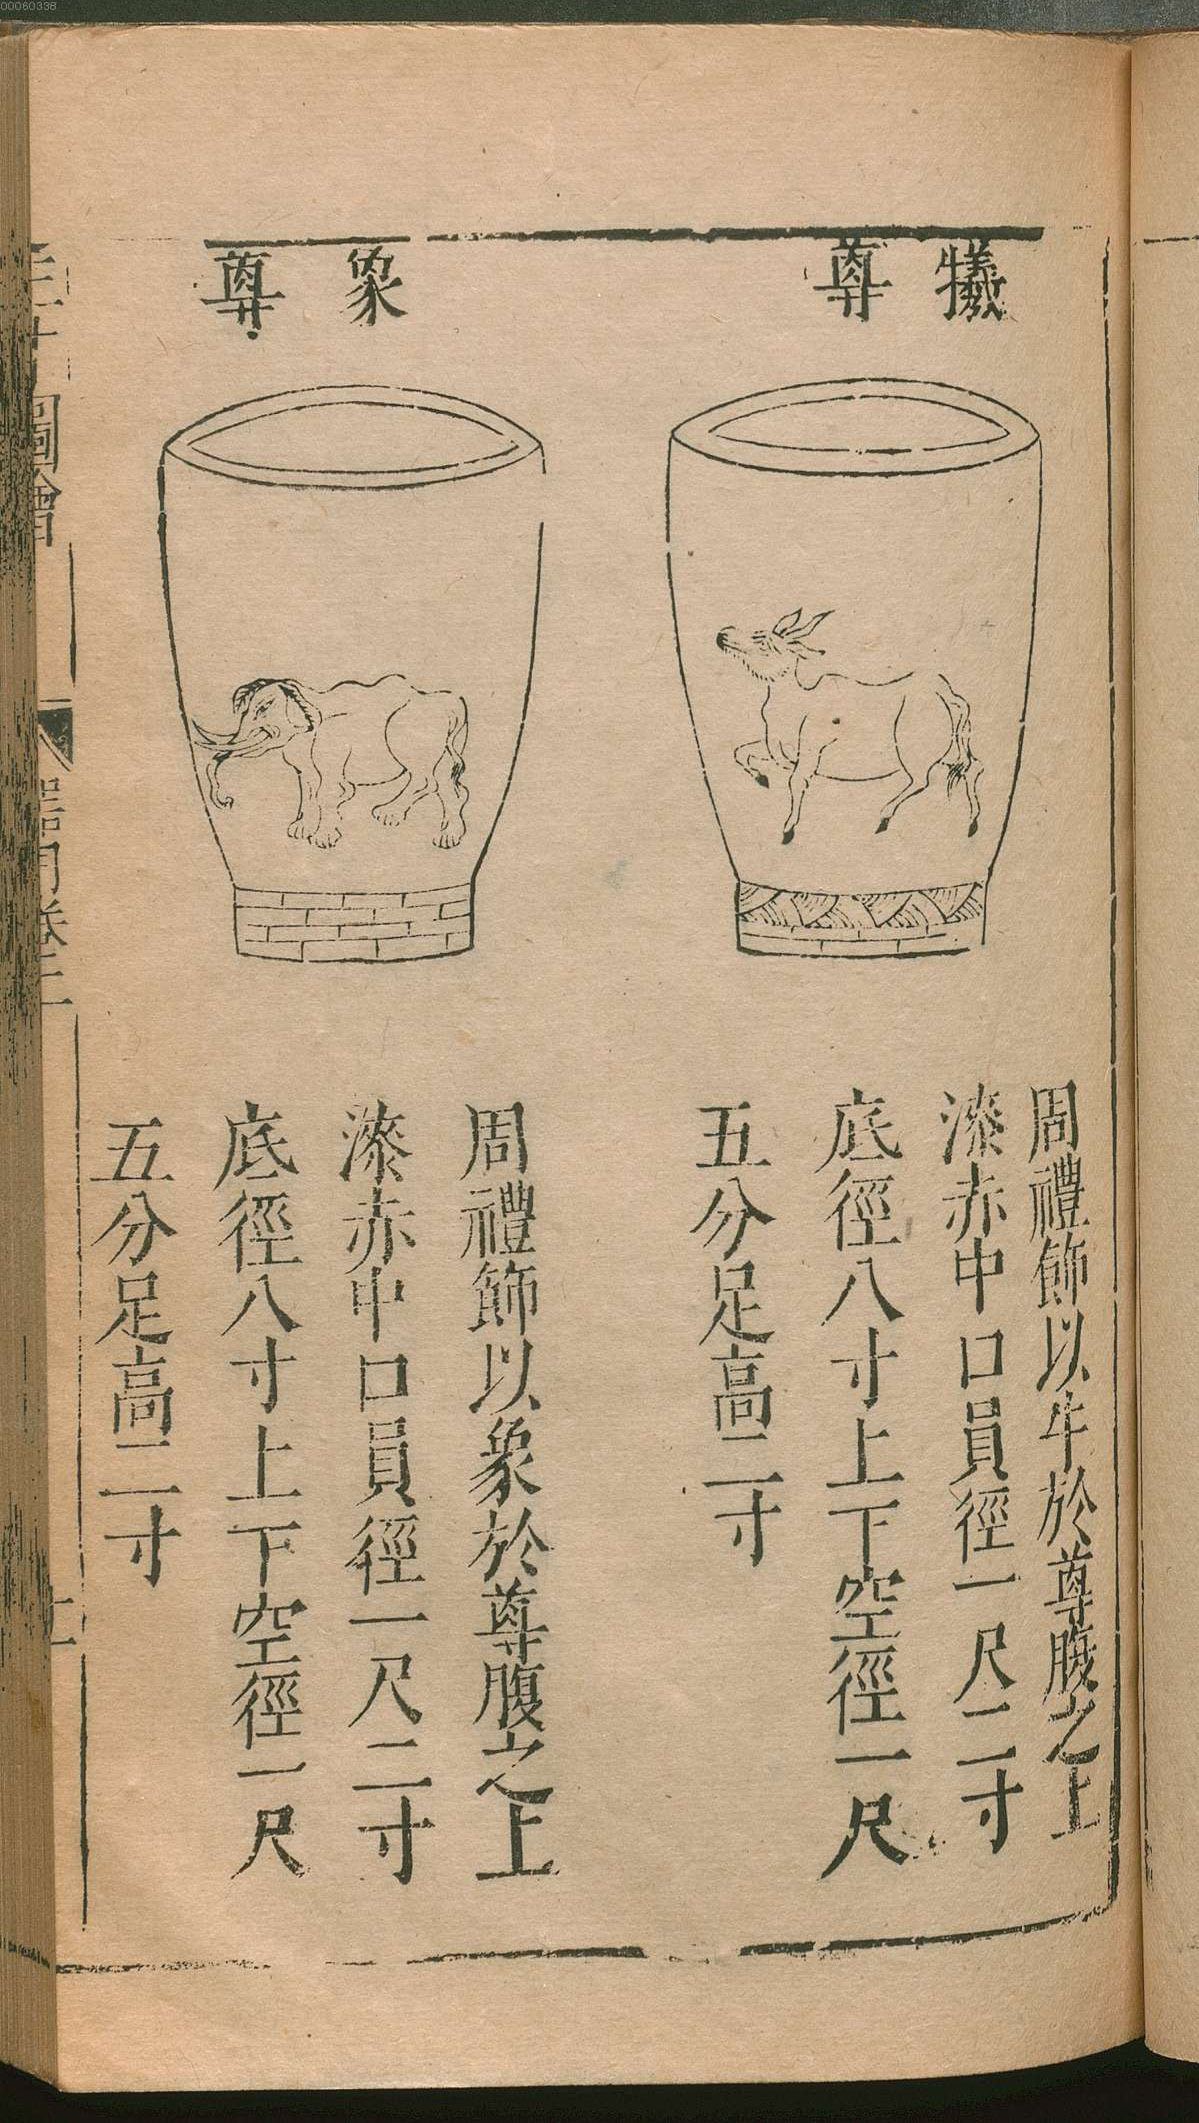 犧尊
周禮飾以牛於尊腹之上
漆赤中口員徑一尺二寸
底徑八寸上下空徑一尺
五分足高二寸
象尊
周禮飾以象於尊腹之上
漆赤中口員徑一尺二寸
底徑八寸上下空徑一尺
五分足高二寸
圖會
00060338